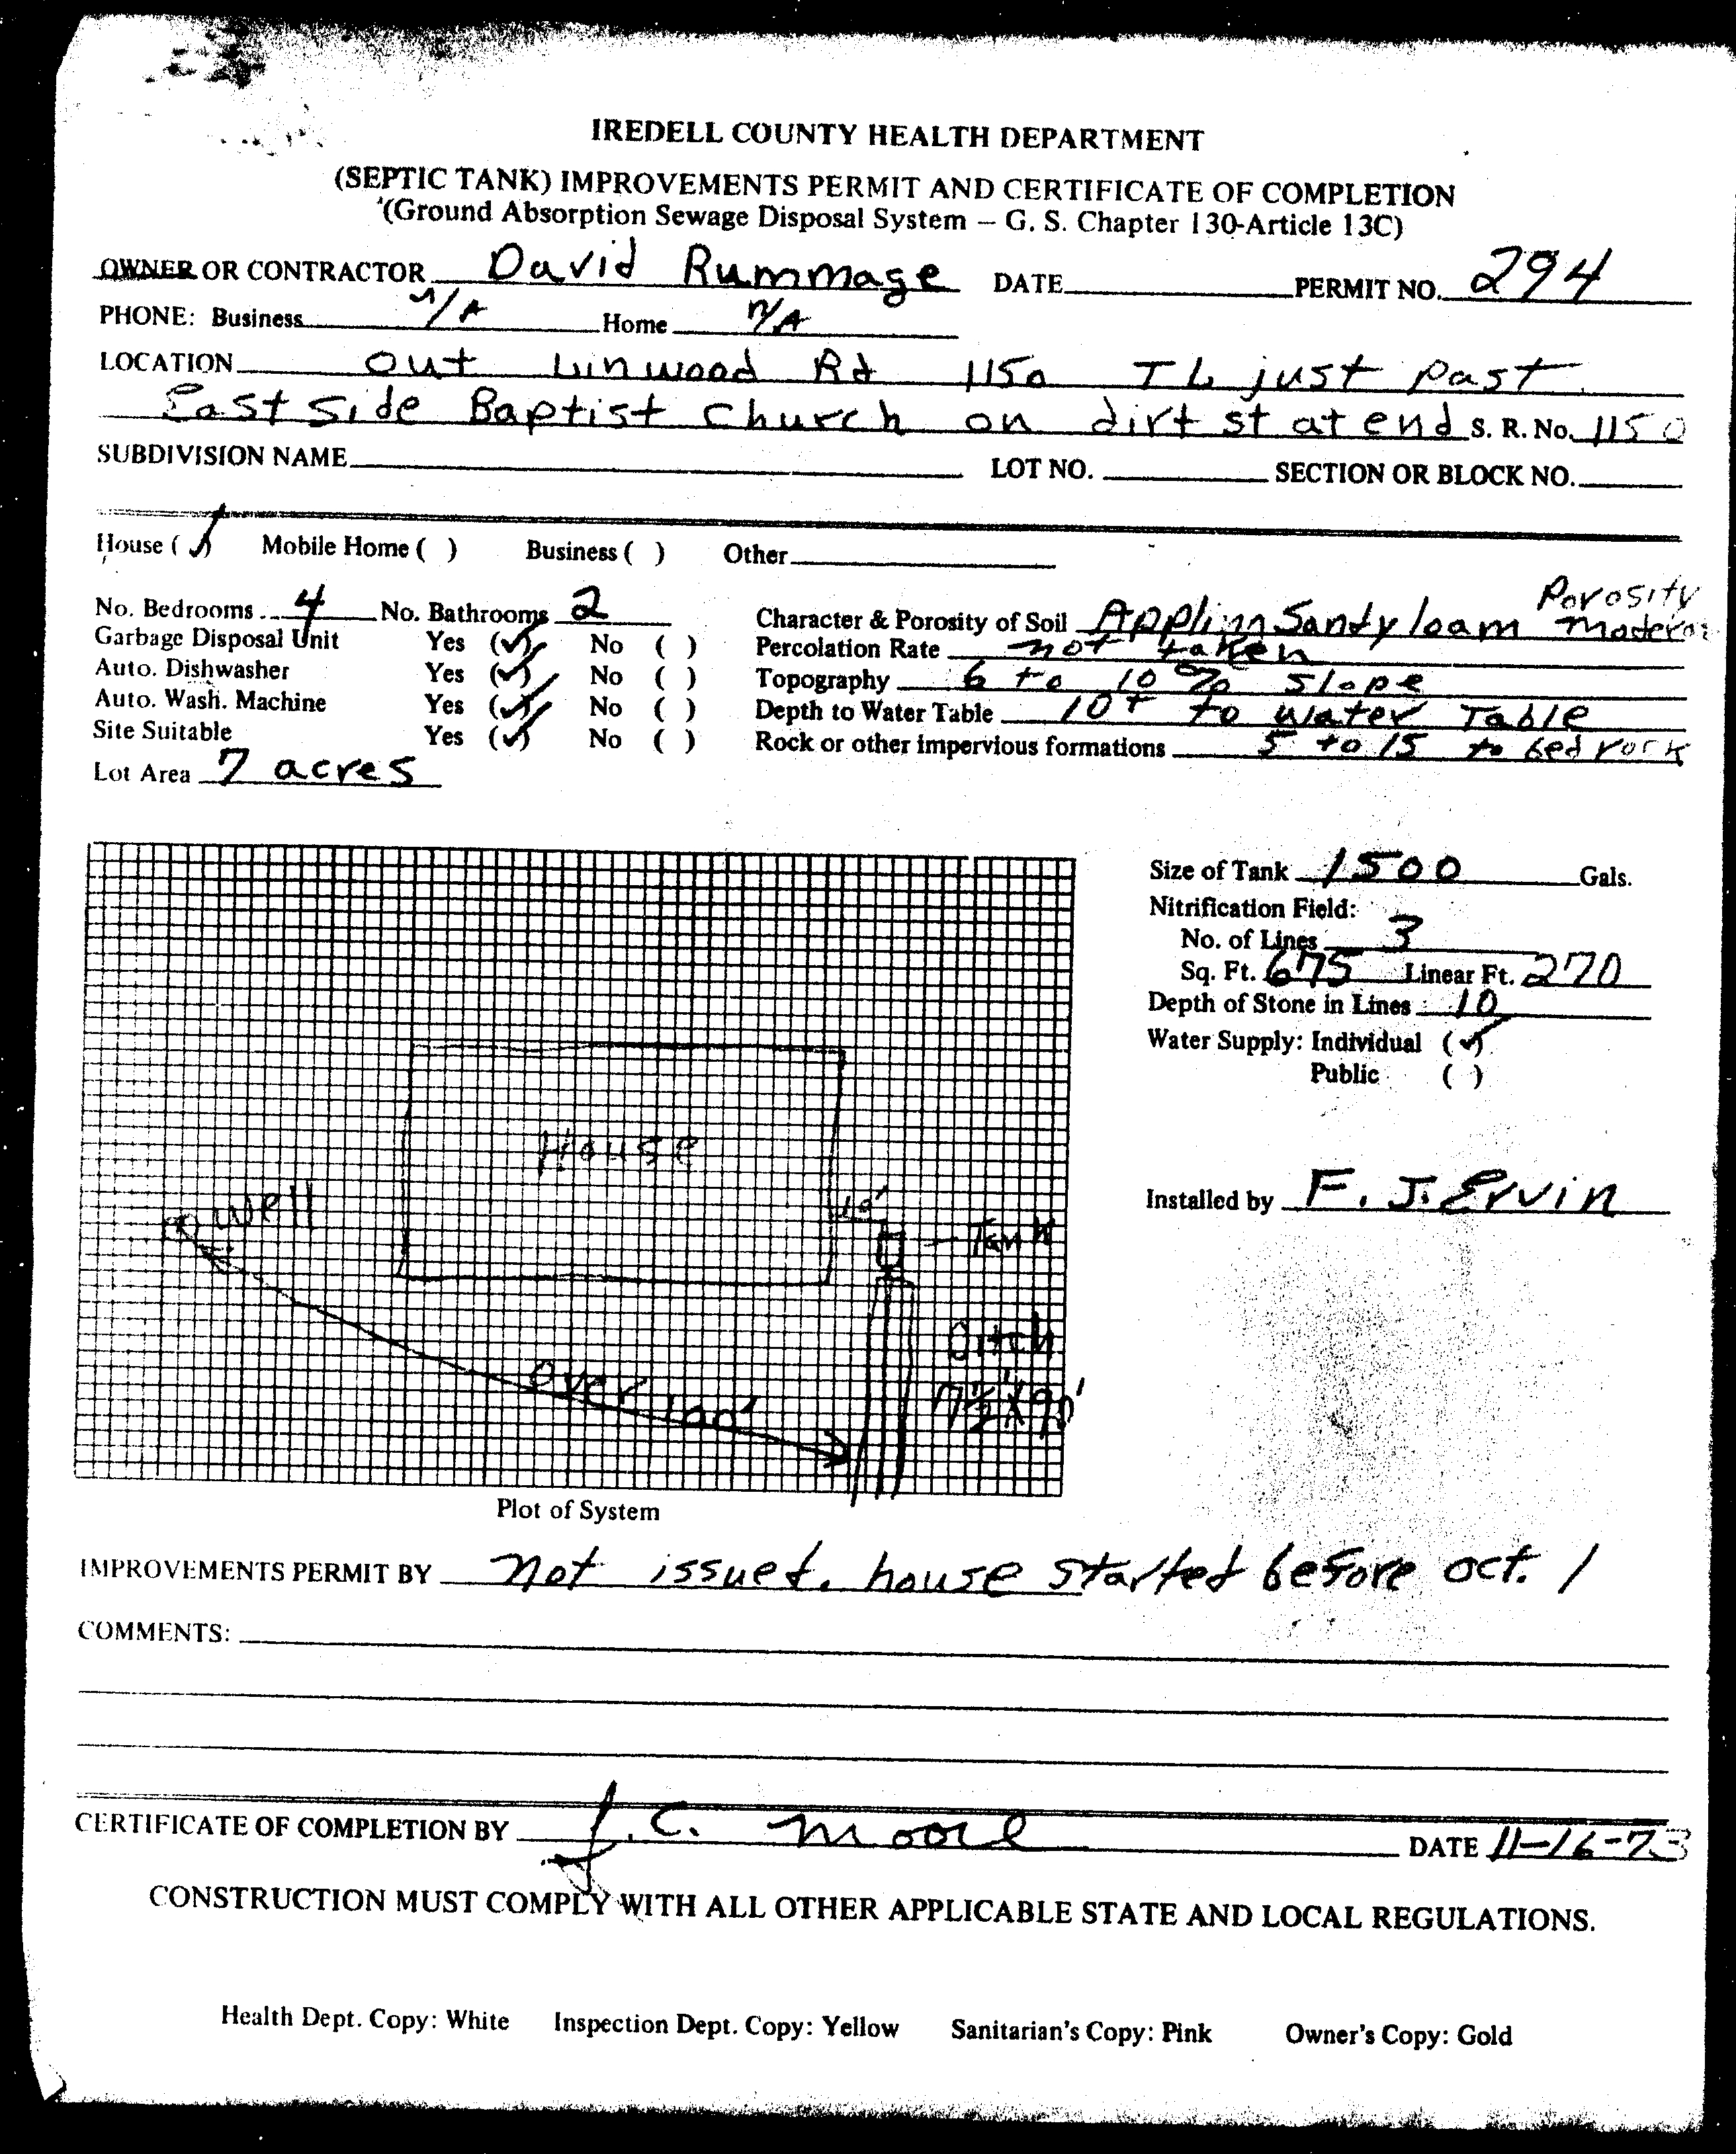 IREDELL COUNTY HEALTH DEPARTMENT
(SEPTIC TANK) IMPROVEMENTS PERMIT AND CERTIFICATE OF COMPLETION
(Ground Absorption Sewage Disposal System – G. S. Chapter 130-Article 13C)
OWNER OR CONTRACTOR David Rummage DATE PERMIT NO. 294
PHONE: Business n/A Home n/A
LOCATION out Linwood Rd 1150 TL just past
East side Baptist Church on dirt st at end S. R. No. 1150
SUBDIVISION NAME LOT NO. SECTION OR BLOCK NO.
House (✓) Mobile Home ( ) Business ( ) Other
No. Bedrooms 4 No. Bathrooms 2
Garbage Disposal Unit Yes (✓) No ( )
Auto. Dishwasher Yes (✓) No ( )
Auto. Wash. Machine Yes (✓) No ( )
Site Suitable Yes (✓) No ( )
Lot Area 7 acres
Porosity
Character & Porosity of Soil Appling Sandy loam
Percolation Rate not taken
Topography 6 to 10% slope
Depth to Water Table 10+ to water Table
Rock or other impervious formations 5 to 15 to bedrock
Size of Tank 1500 Gals.
Nitrification Field:
No. of Lines 3
Sq. Ft. 675 Linear Ft. 270
Depth of Stone in Lines 10
Water Supply: Individual (✓)
Public ( )
Installed by F. J. Ervin
House
well
10'
Tank
Ditch
7½'X90'
over 100'
Plot of System
IMPROVEMENTS PERMIT BY not issued. house started before oct. 1
COMMENTS:
CERTIFICATE OF COMPLETION BY J. C. Moore DATE 11-16-73
CONSTRUCTION MUST COMPLY WITH ALL OTHER APPLICABLE STATE AND LOCAL REGULATIONS.
Health Dept. Copy: White Inspection Dept. Copy: Yellow Sanitarian's Copy: Pink Owner's Copy: Gold